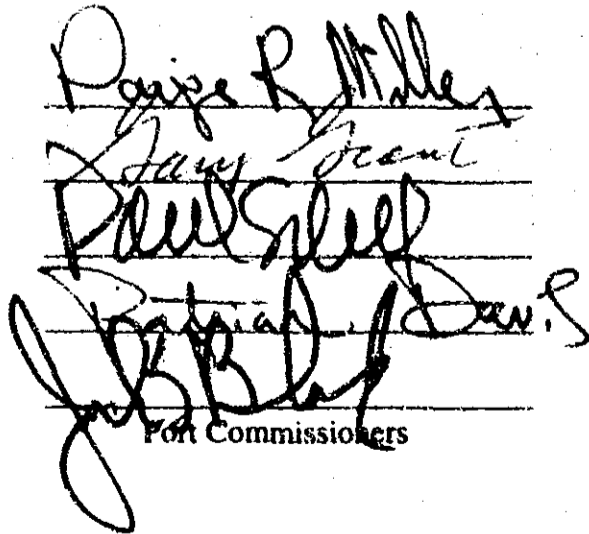 Paige R. Miller
Gary Grant
Paul Schell
Patricia Davis
Jack Block
Port Commissioners